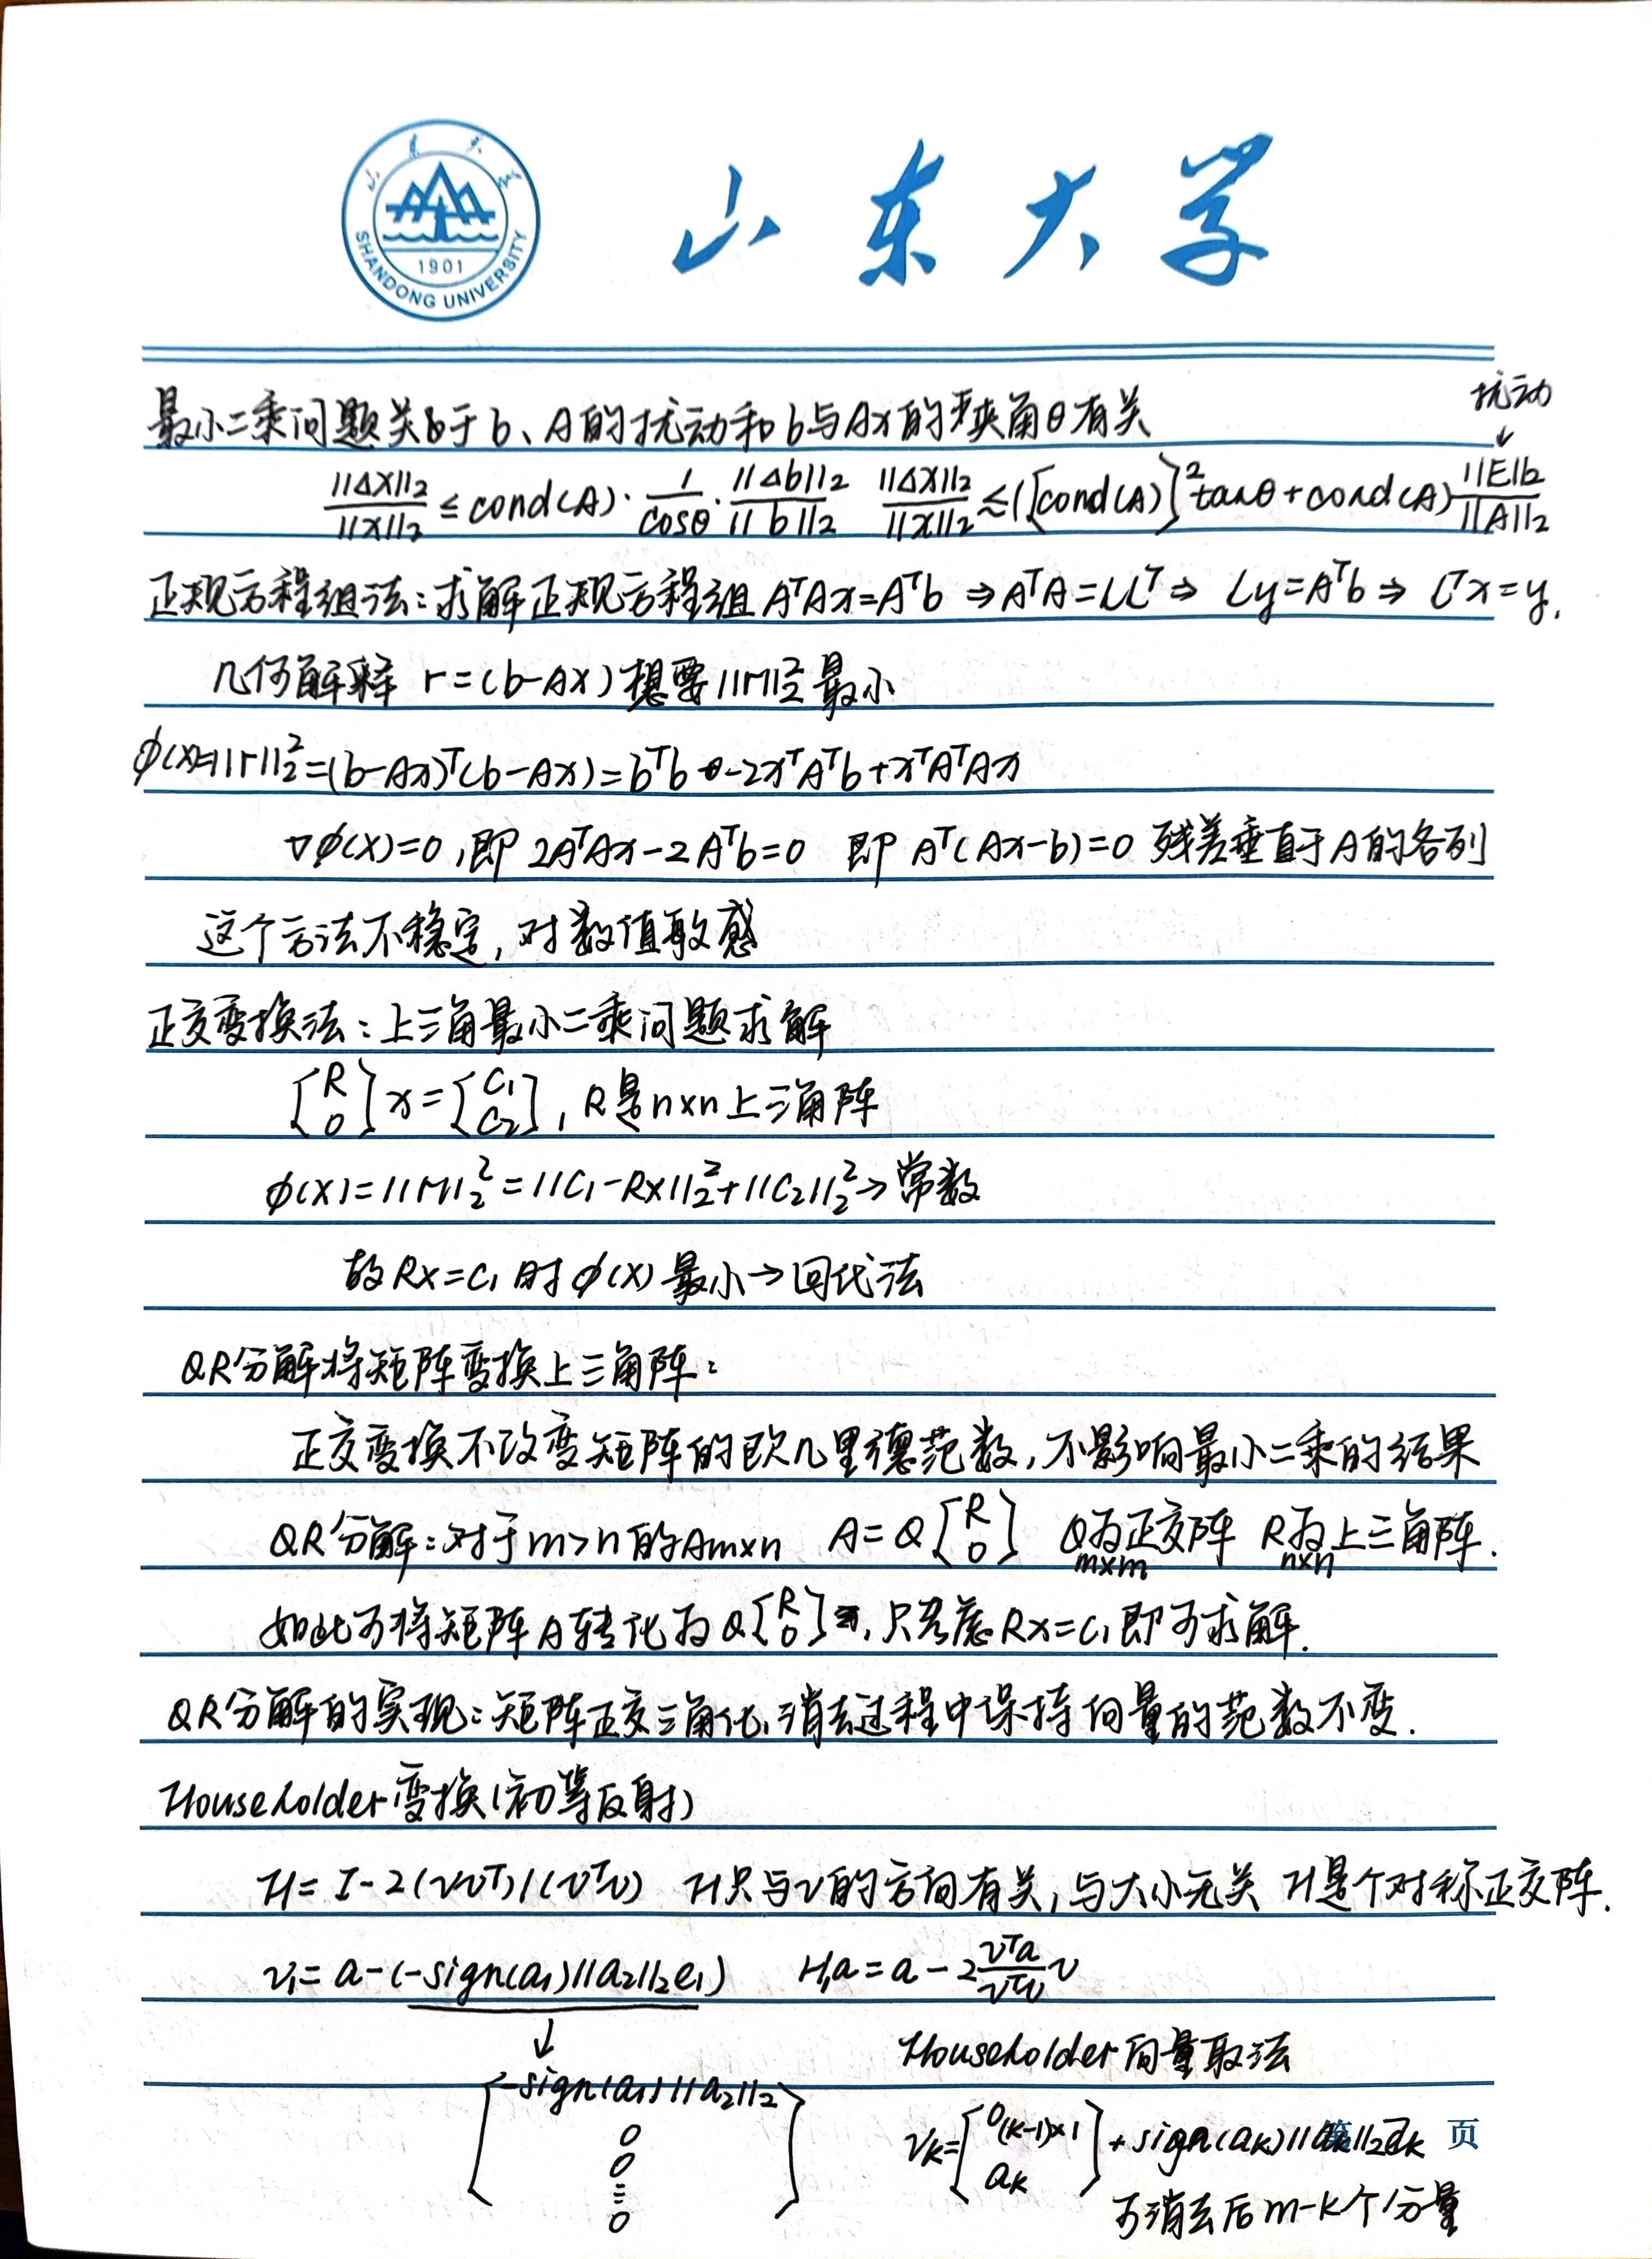 山东大学
SHANDONG UNIVERSITY
1901
山东大学
扰动
↓
最小二乘问题关于b、A的扰动和b与Ax的夹角θ有关
||ΔX||₂/||x||₂ ≤ cond(A)·1/cosθ·||Δb||₂/||b||₂ ||ΔX||₂/||x||₂ ≲ ([cond(A)]² tanθ + cond(A) ||E||₂/||A||₂
正规方程组法：求解正规方程组 AᵀAx=Aᵀb ⇒ AᵀA=LLᵀ ⇒ Ly=Aᵀb ⇒ Lᵀx=y.
几何解释 r=(b-Ax) 想要||r||₂² 最小
φ(x)=||r||₂²=(b-Ax)ᵀ(b-Ax)=bᵀb-2xᵀAᵀb+xᵀAᵀAx
▽φ(x)=0,即 2AᵀAx-2Aᵀb=0 即 Aᵀ(Ax-b)=0 残差垂直于A的各列
这个方法不稳定,对数值敏感
正交变换法：上三角最小二乘问题求解
[R 0] x = [C₁ C₂], R是n×n上三角阵
φ(x)=||r||₂²=||C₁-Rx||₂²+||C₂||₂²→常数
故Rx=C₁时φ(x)最小→回代法
QR分解将矩阵变换上三角阵：
正交变换不改变矩阵的欧几里德范数,不影响最小二乘的结果
QR分解：对于m>n的Am×n A=Q[R 0] Q为正交阵 R为上三角阵.
m×m n×n
如此可将矩阵A转化为Q[R 0],只考虑Rx=C₁即可求解.
QR分解的实现：矩阵正交三角化,消去过程中保持向量的范数不变.
Householder变换(初等反射)
H=I-2(vvᵀ)/(vᵀv) H只与v的方向有关,与大小无关 H是个对称正交阵.
v₁=a-(-sign(a₁)||a₂||₂e₁) H₁a=a-2 vᵀa/vᵀv v
↓
Householder向量取法
[-sign(a₁)||a₂||₂ 0 0 ⋮ 0]
vₖ=[0(k-1)×1 aₖ]+sign(aₖ)||aₖ||₂eₖ
第 页
可消去后m-k个分量